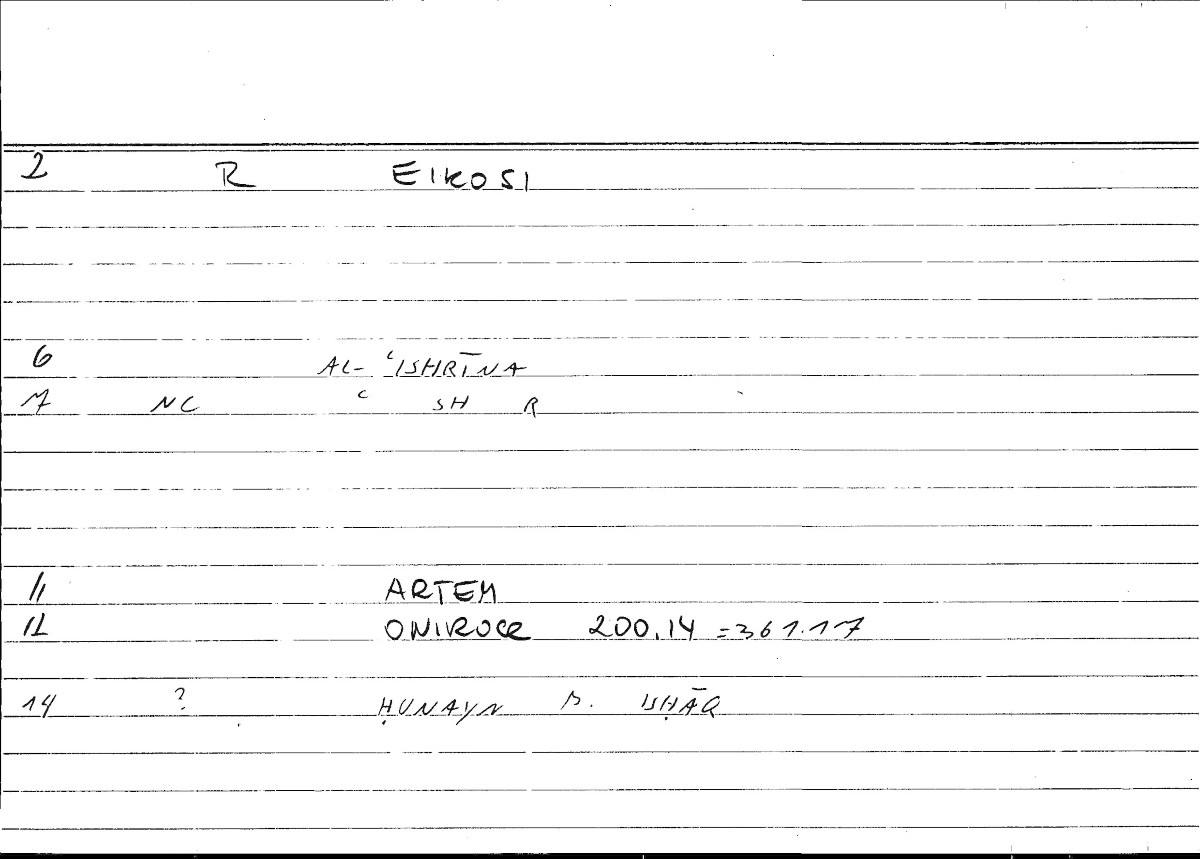 2 R EIKOSI
6 AL-ʿISHRĪNA
7 NC ʿ SH R
11 ARTEM
12 ONIROCR 200.14 =361.17
14 ? ḤUNAYN B. ISḤĀQ